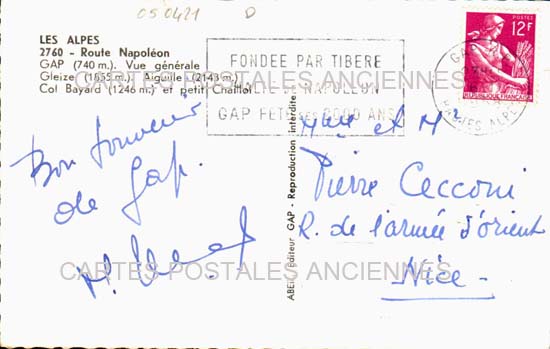 050421
D
LES ALPES
2760 - Route Napoléon
GAP (740 m.). Vue générale
Gleize (1855 m.). Aiguille (2143 m.).
Col Bayard (1246 m.) et petit Chaillol
FONDEE PAR TIBERE
NAPOLEON
GAP FETE SES 2000 ANS
12F
REPUBLIQUE FRANÇAISE
HAUTES ALPES
CARTES POSTALES ANCIENNES
Bon souvenir
de Gap.
ABEIL Editeur GAP - Reproduction interdite
Mme et Mr
Pierre Cecconi
R. de l'armée d'orient
Nice -
CARTES POSTALES ANCIENNES